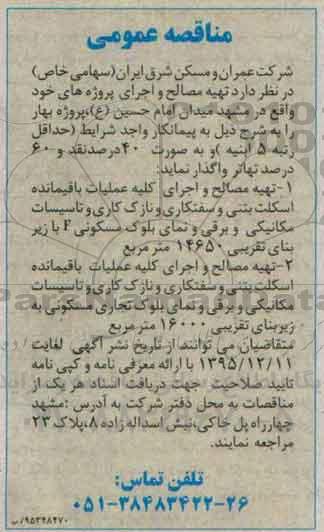 مناقصه عمومی
شرکت عمران و مسکن شرق ایران (سهامی خاص)
در نظر دارد تهیه مصالح و اجرای پروژه های خود
واقع در مشهد میدان امام حسین (ع)، پروژه بهار
را به شرح ذیل به پیمانکار واجد شرایط (حداقل
رتبه ۵ ابنیه) و به صورت ۴۰درصدنقد و ۶۰
درصد تهاتر واگذار نماید:
۱-تهیه مصالح و اجرای کلیه عملیات باقیمانده
اسکلت بتنی و سفتکاری و نازک کاری و تاسیسات
مکانیکی و برقی و نمای بلوک مسکونی F با زیر
بنای تقریبی ۱۴۶۵۰ متر مربع
۲-تهیه مصالح و اجرای کلیه عملیات باقیمانده
اسکلت بتنی و سفتکاری و نازک کاری و تاسیسات
مکانیکی و برقی و نمای بلوک تجاری مسکونی به
زیربنای تقریبی ۱۶۰۰۰ متر مربع
متقاضیان می توانند از تاریخ نشر آگهی لغایت
۱۳۹۵/۱۲/۱۱ با ارائه معرفی نامه و کپی نامه
تایید صلاحیت جهت دریافت اسناد هر یک از
مناقصات به محل دفتر شرکت به آدرس :مشهد
چهارراه پل خاکی،نبش اسداله زاده ۸،پلاک ۲۳
مراجعه نمایند.
تلفن تماس:
۰۵۱-۳۸۴۸۳۴۲۲-۲۶
۹۵۳۴۸۴۷۰/ب